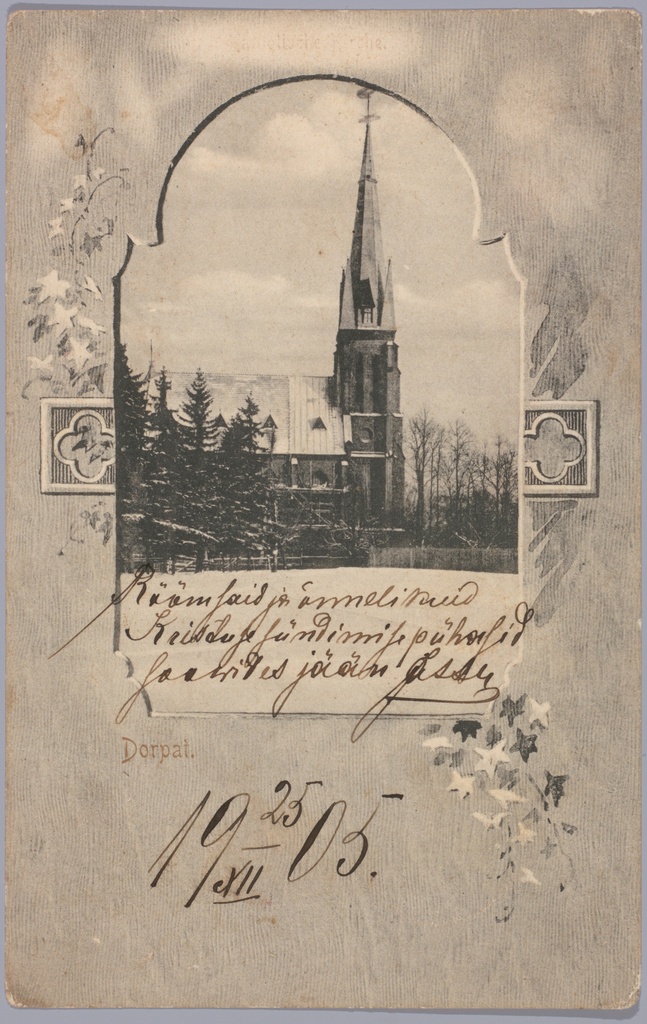 Rõõmsaid ja õnnelikuid
Kristuse sündimise pühasid
soowides jään
Dorpat.
19 25/XII 05.